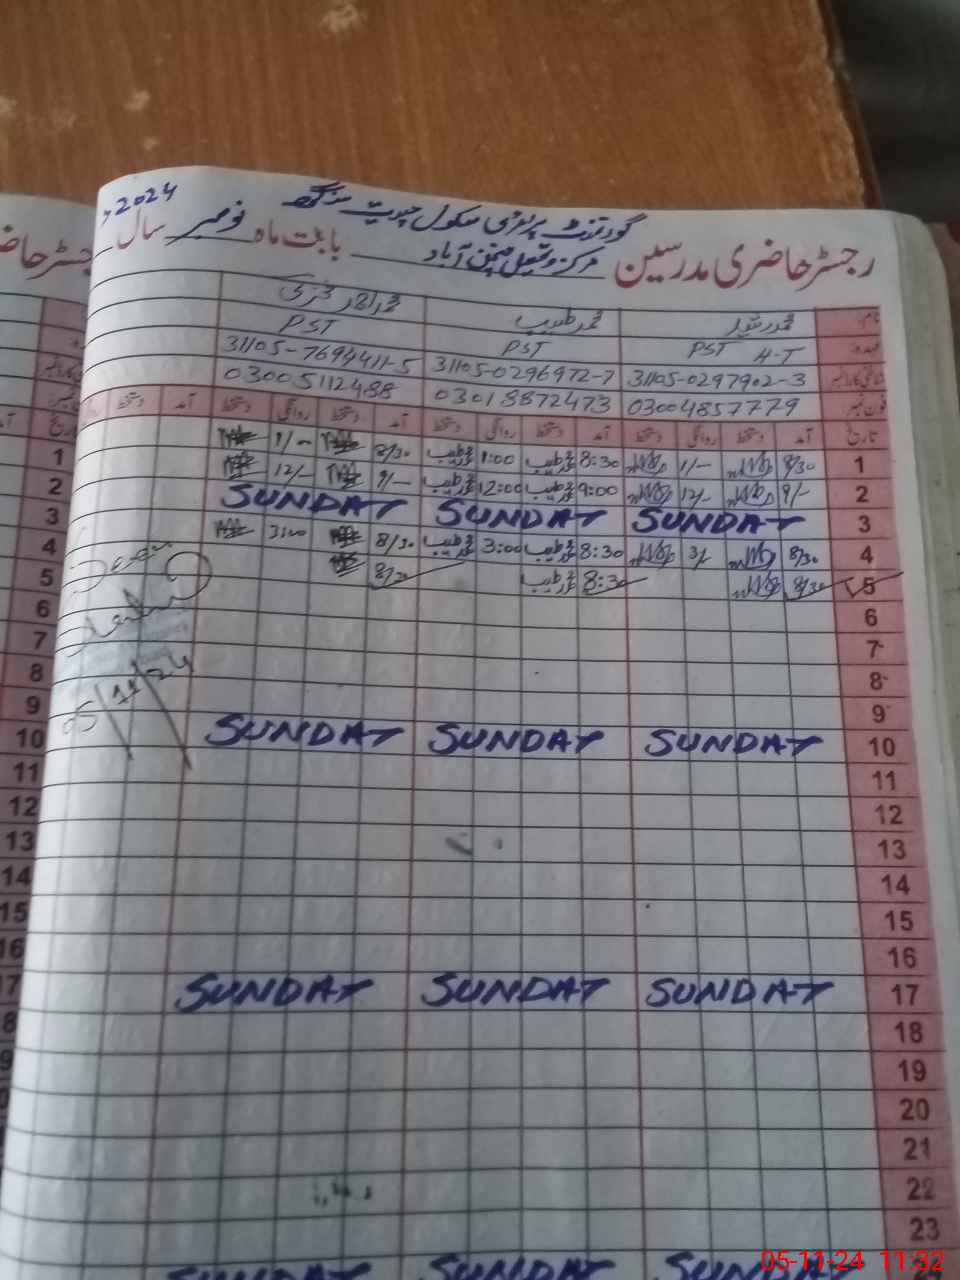 گورنمنٹ پرائمری سکول
2024
رجسٹر حاضری مدرسین مرکز وتحصیل آباد بابت ماہ نومبر سال
نام محمد محمد طیب محمد
عہدہ PST H-T PST PST
31105-0297902-3 31105-0296972-7 31105-7694411-5
فون نمبر 03004857779 03013872473 03005112488
تاریخ آمد دستخط روانگی دستخط آمد دستخط روانگی دستخط آمد دستخط روانگی دستخط آمد دستخط
1 8/30 1/- 8:30 محمد طیب 1:00 محمد طیب 8/30 1/- 1
2 9/- 12/- 9:00 محمد طیب 12:00 محمد طیب 9/- 12/- 2
3 SUNDAY SUNDAY SUNDAY 3
4 8/30 3/- 8:30 محمد طیب 3:00 محمد طیب 8/30 3:00 4
5 8/30 8:30 محمد طیب 8/30 5
6 6
7 7
8 8
9 9
10 SUNDAY SUNDAY SUNDAY 10
11 11
12 12
13 13
14 14
15 15
16 16
17 SUNDAY SUNDAY SUNDAY 17
18 8
19 9
20
21
22
23
SUNDAY SUNDAY SUNDAY
Seen
05/11/24
05-11-24 11:32